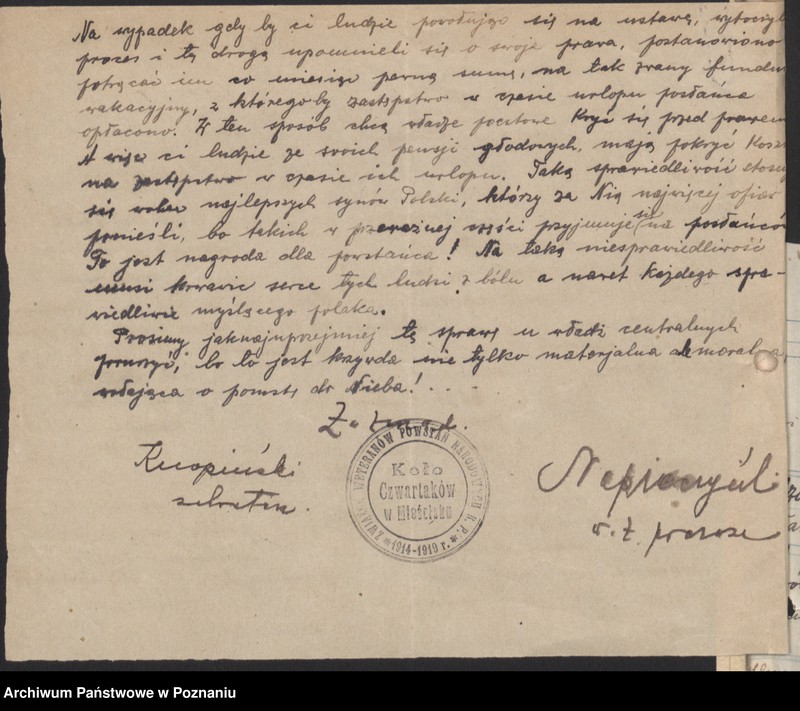 Na wypadek gdy by ci ludzie powołując się na ustawę, wytoczyli
proces i tą drogą upomnieli się o swoje prawa, postanowiono
potrącać im co miesiąc pewną sumę, na tak zwany fundusz
wakacyjny, z którego by zastępstwo w czasie urlopu posłańca
opłacono. W ten sposób chcą władze pocztowe kryć się przed prawem
A więc ci ludzie ze swoich pensji głodowych, mają pokryć koszt
na zastępstwo w czasie ich urlopu. Taką sprawiedliwość stosuje
się wobec najlepszych synów Polski, którzy za Nią najwięcej ofiar
ponieśli, bo takich w przeważnej części przyjmuje się na posłańców
To jest nagroda dla powstańca! Na taką niesprawiedliwość
musi krwawić serce tych ludzi z bólu a nawet każdego spra-
wiedliwie myślącego polaka.
Prosimy jaknajuprzejmiej tę sprawę u władz centralnych
poruszyć, bo to jest krzywda nie tylko materjalna ale moralna,
wołająca o pomstę do Nieba! . . .
sekretarz.
w. z. prezesa
ZWIĄZEK WETERANÓW POWSTAŃ NARODOWYCH R. P.
Koło
Czwartaków
w Mieścisku
* 1914-1919 r. *
Archiwum Państwowe w Poznaniu